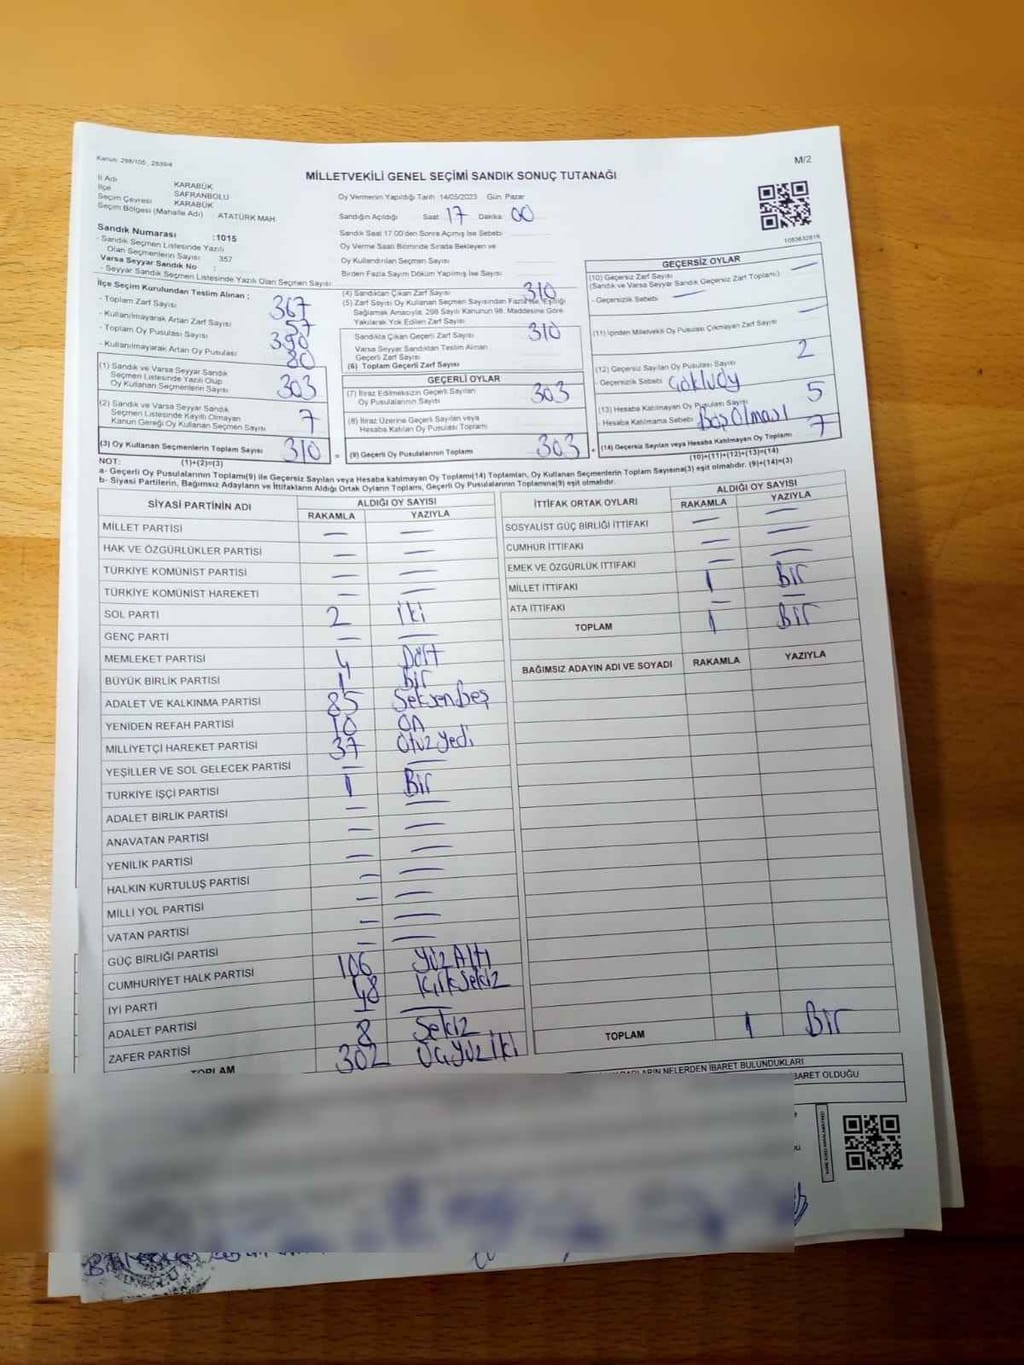 Kanun: 298/105, 2839/4
M/2
MİLLETVEKİLİ GENEL SEÇİMİ SANDIK SONUÇ TUTANAĞI
İl Adı KARABÜK
İlçe SAFRANBOLU
Seçim Çevresi KARABÜK
Seçim Bölgesi (Mahalle Adı) ATATÜRK MAH.
Sandık Numarası :1015
- Sandık Seçmen Listesinde Yazılı
Olan Seçmenlerin Sayısı 357
Varsa Seyyar Sandık No :
- Seyyar Sandık Seçmen Listesinde Yazılı Olan Seçmen Sayısı:
Oy Vermenin Yapıldığı Tarih 14/05/2023 Gün Pazar
Sandığın Açıldığı Saat 17 Dakika 00
Sandık Saat 17.00'den Sonra Açılmış İse Sebebi
Oy Verme Saati Bitiminde Sırada Bekleyen ve
Oy Kullandırılan Seçmen Sayısı
Birden Fazla Sayım Döküm Yapılmış İse Sayısı
İlçe Seçim Kurulundan Teslim Alınan ;
- Toplam Zarf Sayısı 367
- Kullanılmayarak Artan Zarf Sayısı 57
- Toplam Oy Pusulası Sayısı 390
- Kullanılmayarak Artan Oy Pusulası 80
(1) Sandık ve Varsa Seyyar Sandık
Seçmen Listesinde Yazılı Olup
Oy Kullanan Seçmenlerin Sayısı 303
(2) Sandık ve Varsa Seyyar Sandık
Seçmen Listesinde Kayıtlı Olmayan
Kanun Gereği Oy Kullanan Seçmen Sayısı 7
(3) Oy Kullanan Seçmenlerin Toplam Sayısı 310
(1)+(2)=(3)
(4) Sandıktan Çıkan Zarf Sayısı 310
(5) Zarf Sayısı Oy Kullanan Seçmen Sayısından Fazla İse, Eşitliği
Sağlamak Amacıyla, 298 Sayılı Kanunun 98. Maddesine Göre
Yakılarak Yok Edilen Zarf Sayısı
Sandıkta Çıkan Geçerli Zarf Sayısı 310
Varsa Seyyar Sandıktan Teslim Alınan
Geçerli Zarf Sayısı
(6) Toplam Geçerli Zarf Sayısı
GEÇERLİ OYLAR
(7) İtiraz Edilmeksizin Geçerli Sayılan
Oy Pusulalarının Sayısı 303
(8) İtiraz Üzerine Geçerli Sayılan veya
Hesaba Katılan Oy Pusulası Toplamı
(9) Geçerli Oy Pusulalarının Toplamı 303
GEÇERSİZ OYLAR
(10) Geçersiz Zarf Sayısı
(Sandık ve Varsa Seyyar Sandık Geçersiz Zarf Toplamı) —
- Geçersizlik Sebebi —
(11) İçinden Milletvekili Oy Pusulası Çıkmayan Zarf Sayısı —
(12) Geçersiz Sayılan Oy Pusulası Sayısı 2
- Geçersizlik Sebebi Çokluoy
(13) Hesaba Katılmayan Oy Pusulası Sayısı 5
- Hesaba Katılmama Sebebi Boş Olması
(14) Geçersiz Sayılan veya Hesaba Katılmayan Oy Toplamı 7
(10)+(11)+(12)+(13)=(14)
NOT:
a- Geçerli Oy Pusulalarının Toplamı(9) ile Geçersiz Sayılan veya Hesaba katılmayan Oy Toplamı(14) Toplamları, Oy Kullanan Seçmenlerin Toplam Sayısına(3) eşit olmalıdır. (9)+(14)=(3)
b- Siyasi Partilerin, Bağımsız Adayların ve İttifakların Aldığı Ortak Oyların Toplamı, Geçerli Oy Pusulalarının Toplamına(9) eşit olmalıdır.
SİYASİ PARTİNİN ADI ALDIĞI OY SAYISI
RAKAMLA YAZIYLA
MİLLET PARTİSİ — —
HAK VE ÖZGÜRLÜKLER PARTİSİ — —
TÜRKİYE KOMÜNİST PARTİSİ — —
TÜRKİYE KOMÜNİST HAREKETİ — —
SOL PARTİ 2 İki
GENÇ PARTİ — —
MEMLEKET PARTİSİ 4 Dört
BÜYÜK BİRLİK PARTİSİ 1 Bir
ADALET VE KALKINMA PARTİSİ 85 Seksenbeş
YENİDEN REFAH PARTİSİ 10 On
MİLLİYETÇİ HAREKET PARTİSİ 37 Otuz yedi
YEŞİLLER VE SOL GELECEK PARTİSİ — —
TÜRKİYE İŞÇİ PARTİSİ 1 Bir
ADALET BİRLİK PARTİSİ — —
ANAVATAN PARTİSİ — —
YENİLİK PARTİSİ — —
HALKIN KURTULUŞ PARTİSİ — —
MİLLİ YOL PARTİSİ — —
VATAN PARTİSİ — —
GÜÇ BİRLİĞİ PARTİSİ — —
CUMHURİYET HALK PARTİSİ 106 Yüz Altı
İYİ PARTİ 48 Kırksekiz
ADALET PARTİSİ — —
ZAFER PARTİSİ 8 Sekiz
TOPLAM 302 Üçyüz iki
İTTİFAK ORTAK OYLARI ALDIĞI OY SAYISI
RAKAMLA YAZIYLA
SOSYALİST GÜÇ BİRLİĞİ İTTİFAKI — —
CUMHUR İTTİFAKI — —
EMEK VE ÖZGÜRLÜK İTTİFAKI — —
MİLLET İTTİFAKI 1 Bir
ATA İTTİFAKI — —
TOPLAM 1 Bir
BAĞIMSIZ ADAYIN ADI VE SOYADI RAKAMLA YAZIYLA
TOPLAM 1 Bir
NELERDEN İBARET BULUNDUKLARI
İBARET OLDUĞU